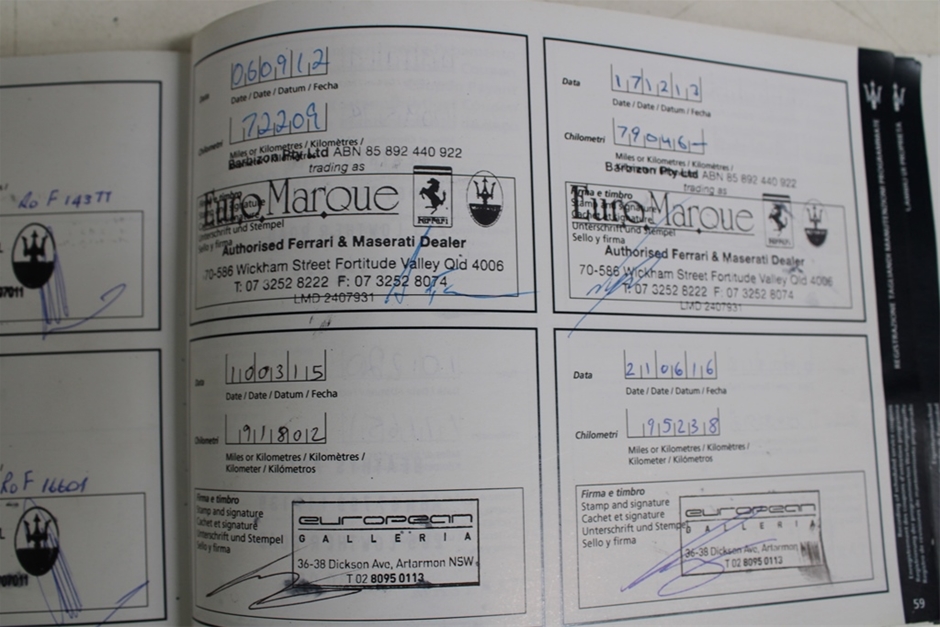 Ro F 14377
Ro F 16601
060912
Data
Date / Date / Datum / Fecha
72209
Chilometri
Miles or Kilometres / Kilomètres /
Barbizon Pty Ltd ABN 85 892 440 922
trading as
Euro Marque
Ferrari
Unterschrift und Stempel
Sello y firma
Authorised Ferrari & Maserati Dealer
70-586 Wickham Street Fortitude Valley Qld 4006
T: 07 3252 8222 F: 07 3252 8074
LMD 2407931
171212
Data
Date / Date / Datum / Fecha
79046
Chilometri
Miles or Kilometres / Kilomètres /
Barbizon Pty Ltd ABN 85 892 440 922
trading as
Firma e timbro
Stamp and signature
Cachet et signature
Unterschrift und Stempel
Sello y firma
Euro Marque
Ferrari
Authorised Ferrari & Maserati Dealer
70-586 Wickham Street Fortitude Valley Qld 4006
T: 07 3252 8222 F: 07 3252 8074
LMD 2407931
100315
Data
Date / Date / Datum / Fecha
91802
Chilometri
Miles or Kilometres / Kilomètres /
Kilometer / Kilómetros
Firma e timbro
Stamp and signature
Cachet et signature
Unterschrift und Stempel
Sello y firma
european
GALLERIA
36-38 Dickson Ave, Artarmon NSW
T 02 8095 0113
210616
Data
Date / Date / Datum / Fecha
95238
Chilometri
Miles or Kilometres / Kilomètres /
Kilometer / Kilómetros
Firma e timbro
Stamp and signature
Cachet et signature
Unterschrift und Stempel
Sello y firma
european
GALLERIA
36-38 Dickson Ave, Artarmon
T 02 8095 0113
REGISTRAZIONE TAGLIANDI MANUTENZIONE PROGRAMMATE
59